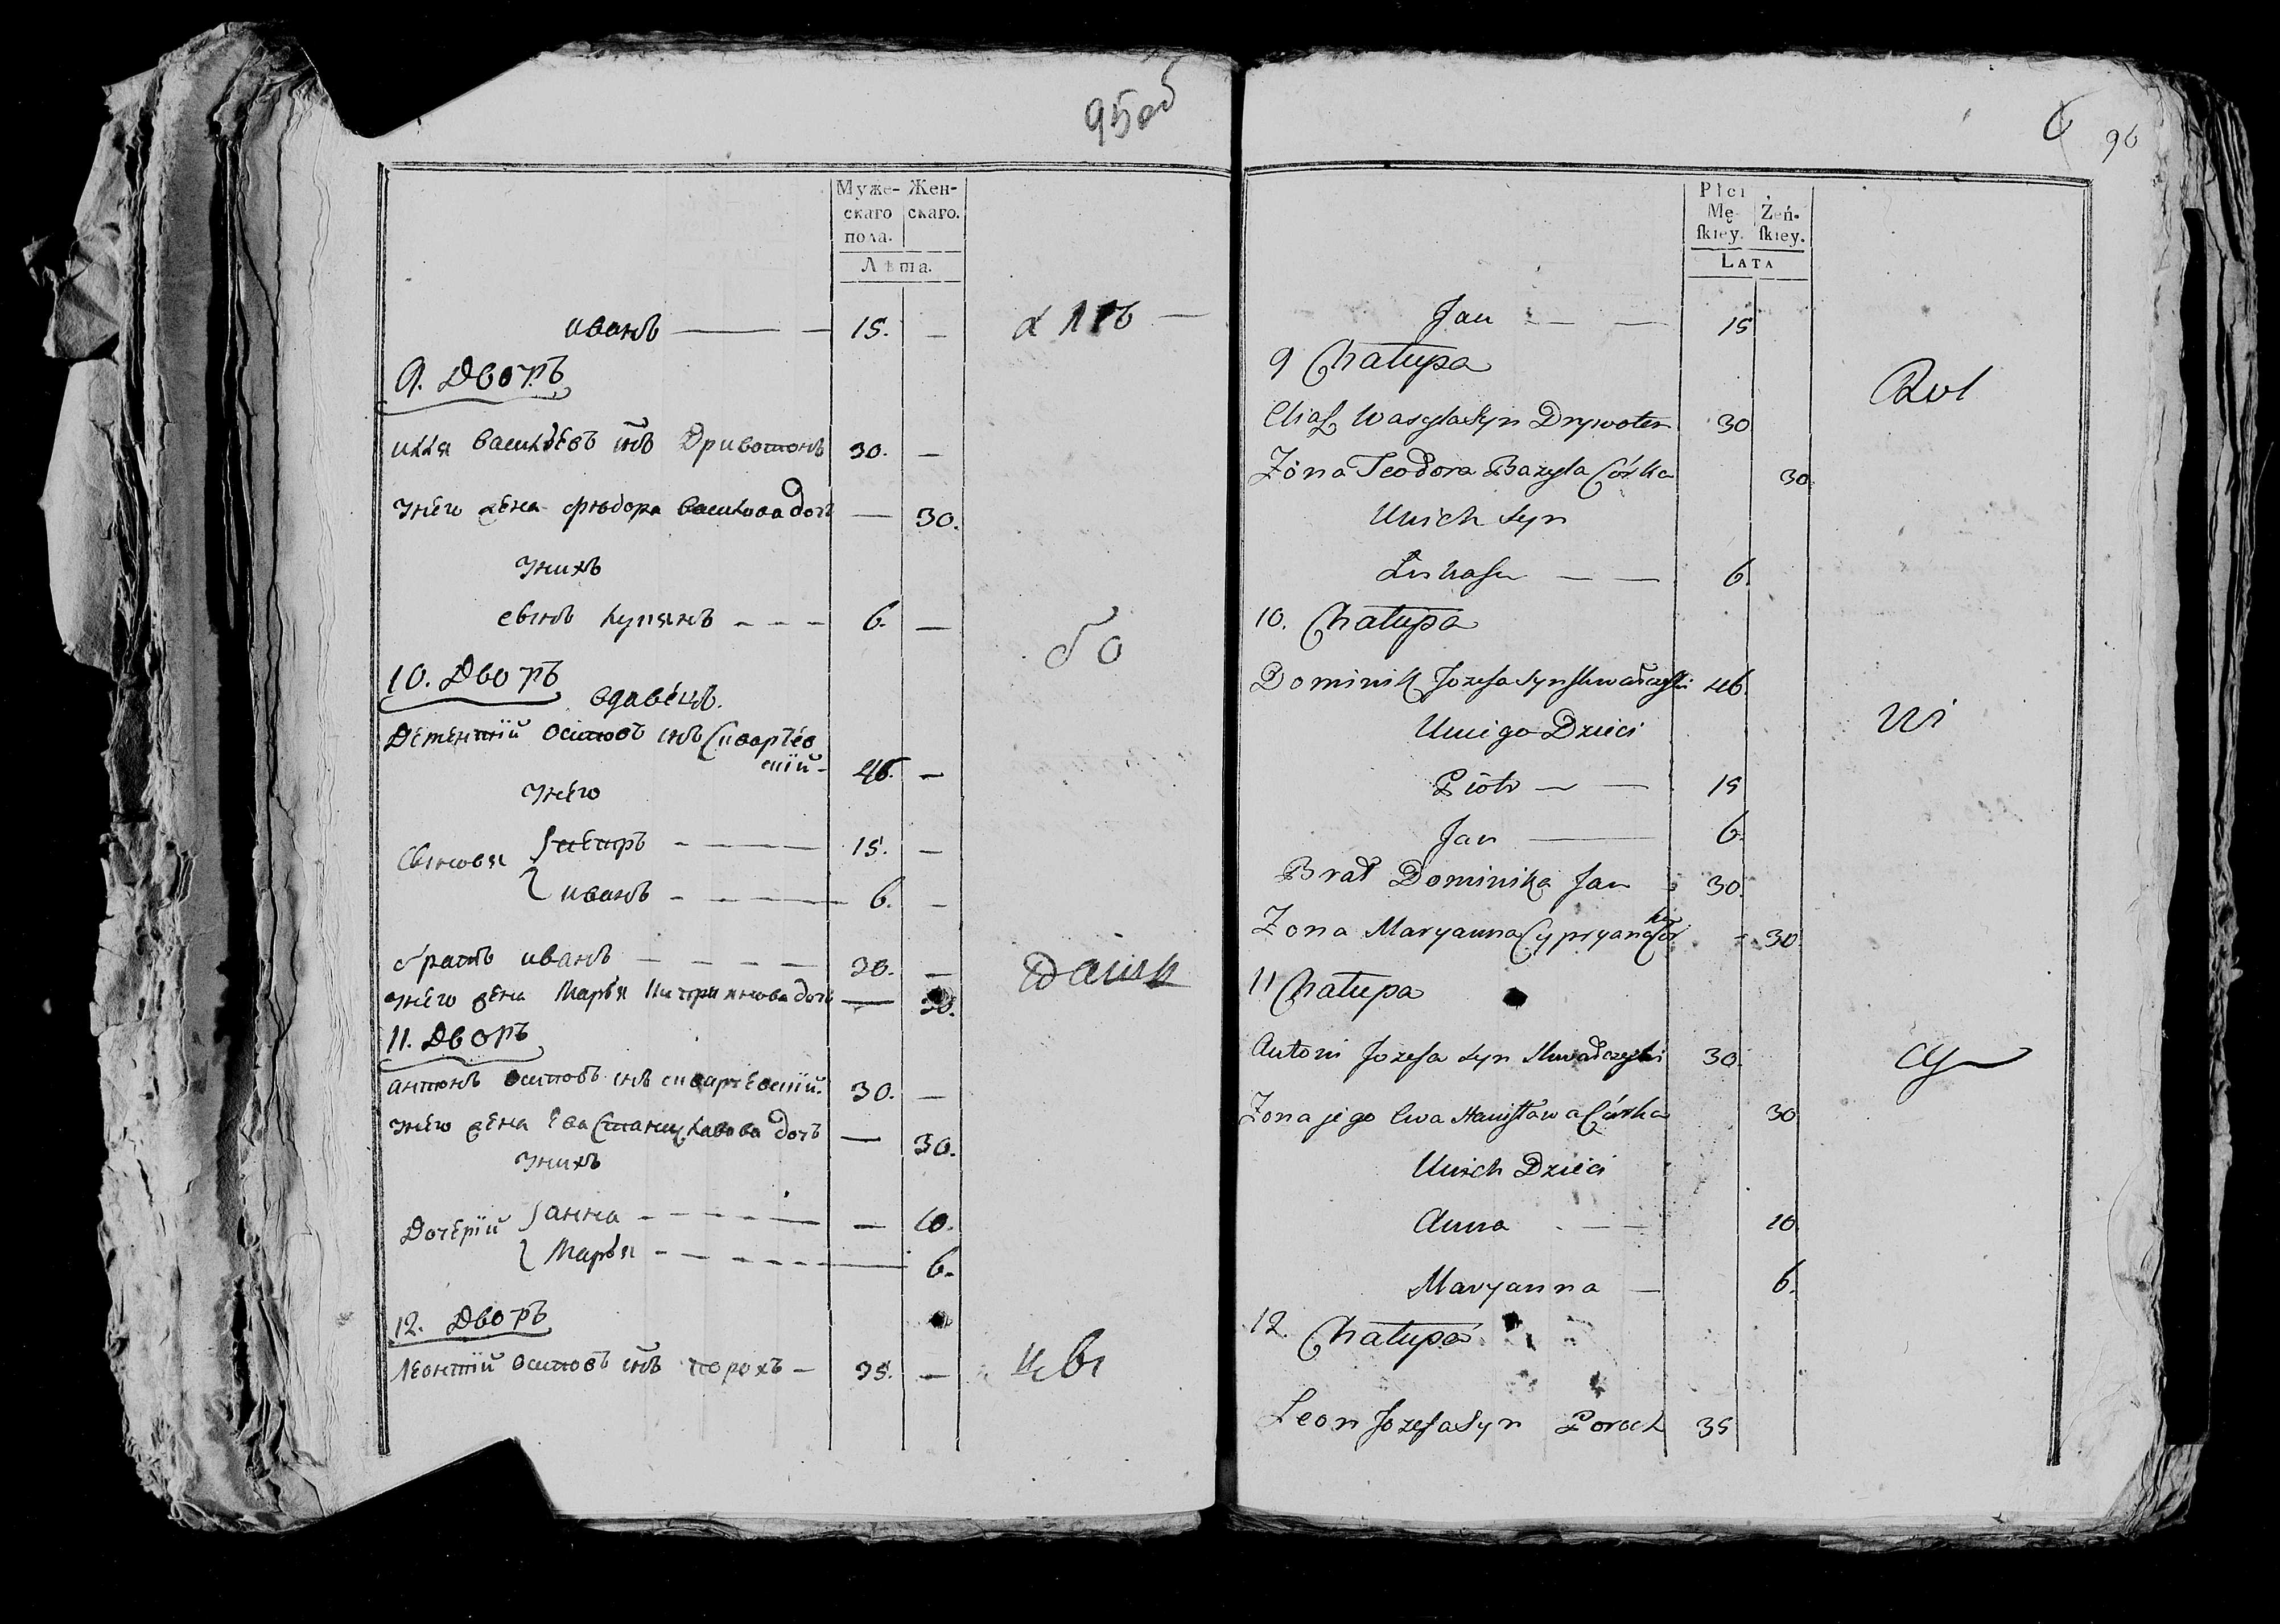 95об
Муже- Жен-
скаго скаго.
пола.
Лѣта.
иванъ 15. —
9. Дворъ
илля васильевъ снъ Дривотонъ 30. —
унего жена федора василова дочь — 30.
унихъ
сынъ 6. —
10. Дворъ
вдавецъ.
осиповъ снъ 46. —
унего
Сыновья петръ 15. —
иванъ 6. —
братъ иванъ 30. —
унего жена Марья дочь — 30.
11. Дворъ
антонъ осиповъ снъ 30. —
унего жена ева Станиславова дочь — 30.
унихъ
Дочерїй анна — 10.
Марья 6.
12. Дворъ
Леонтїй осиповъ снъ порохъ 35. —
96
Płci
Mę- Żeń-
ſkiey. ſkiey.
LATA
Jan 15
9 Chałupa
Eliaſz Wasyla Syn Drywoten 30
Żona Teodora Bazyla Córka 30
Unich Syn
6.
10. Chałupa
Dominik Jozefa Syn 46.
Uniego Dzieci
Piotr 15
Jan 6.
Brat Dominika Jan 30.
Zona Maryanna Cypryana Córka 30
11 Chałupa
Antoni Jozefa Syn 30.
Zona jego Ewa Stanisława Córka 30
Unich Dzieci
Anna 10
Maryanna 6.
12. Chałupa
Leon Jozefa Syn Poroch 35